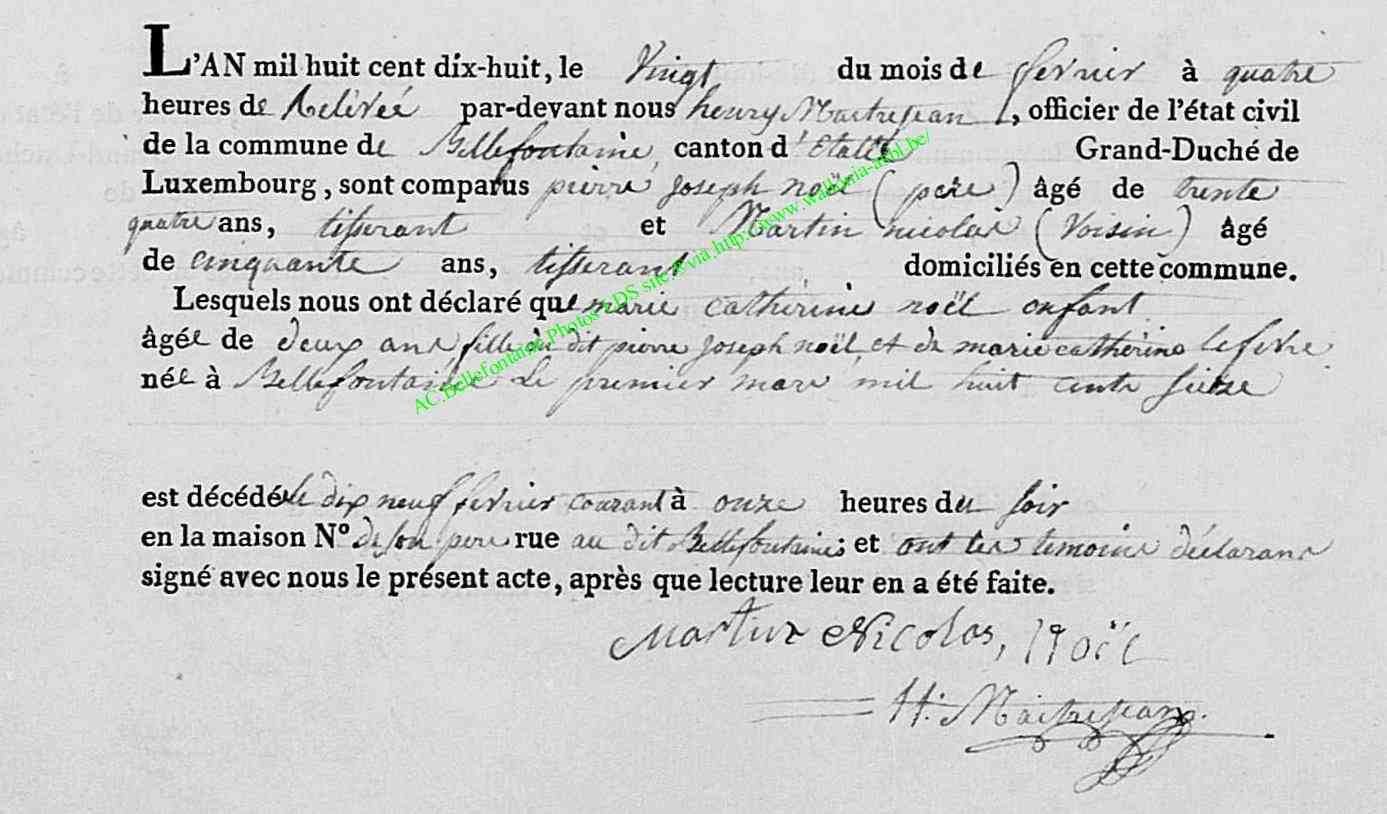 L'AN mil huit cent dix-huit, le Vingt du mois de fevrier à quatre
heures de Relévée par-devant nous henry Maitrejean, officier de l'état civil
de la commune de Bellefontaine, canton d'Etalle Grand-Duché de
Luxembourg, sont comparus pierre joseph noël (pere) âgé de trente
quatre ans, tisserant et Martin nicolas (Voisin) âgé
de cinquante ans, tisserant domiciliés en cette commune.
Lesquels nous ont déclaré que marie catherine noël enfant
âgée de deux ans fille du dit pierre joseph noël, et de marie catherine lefevre
née à Bellefontaine Le premier mars mil huit cents seize
est décédée le dix neuf fevrier courant à onze heures du soir
en la maison N° de son pere rue au dit Bellefontaine; et ont les temoins déclarans
signé avec nous le présent acte, après que lecture leur en a été faite.
Martin Nicolas, Noël
H. Maitrejean.
AC.Bellefontaine,Photos LDS site & via http://www.wallonia-asbl.be/